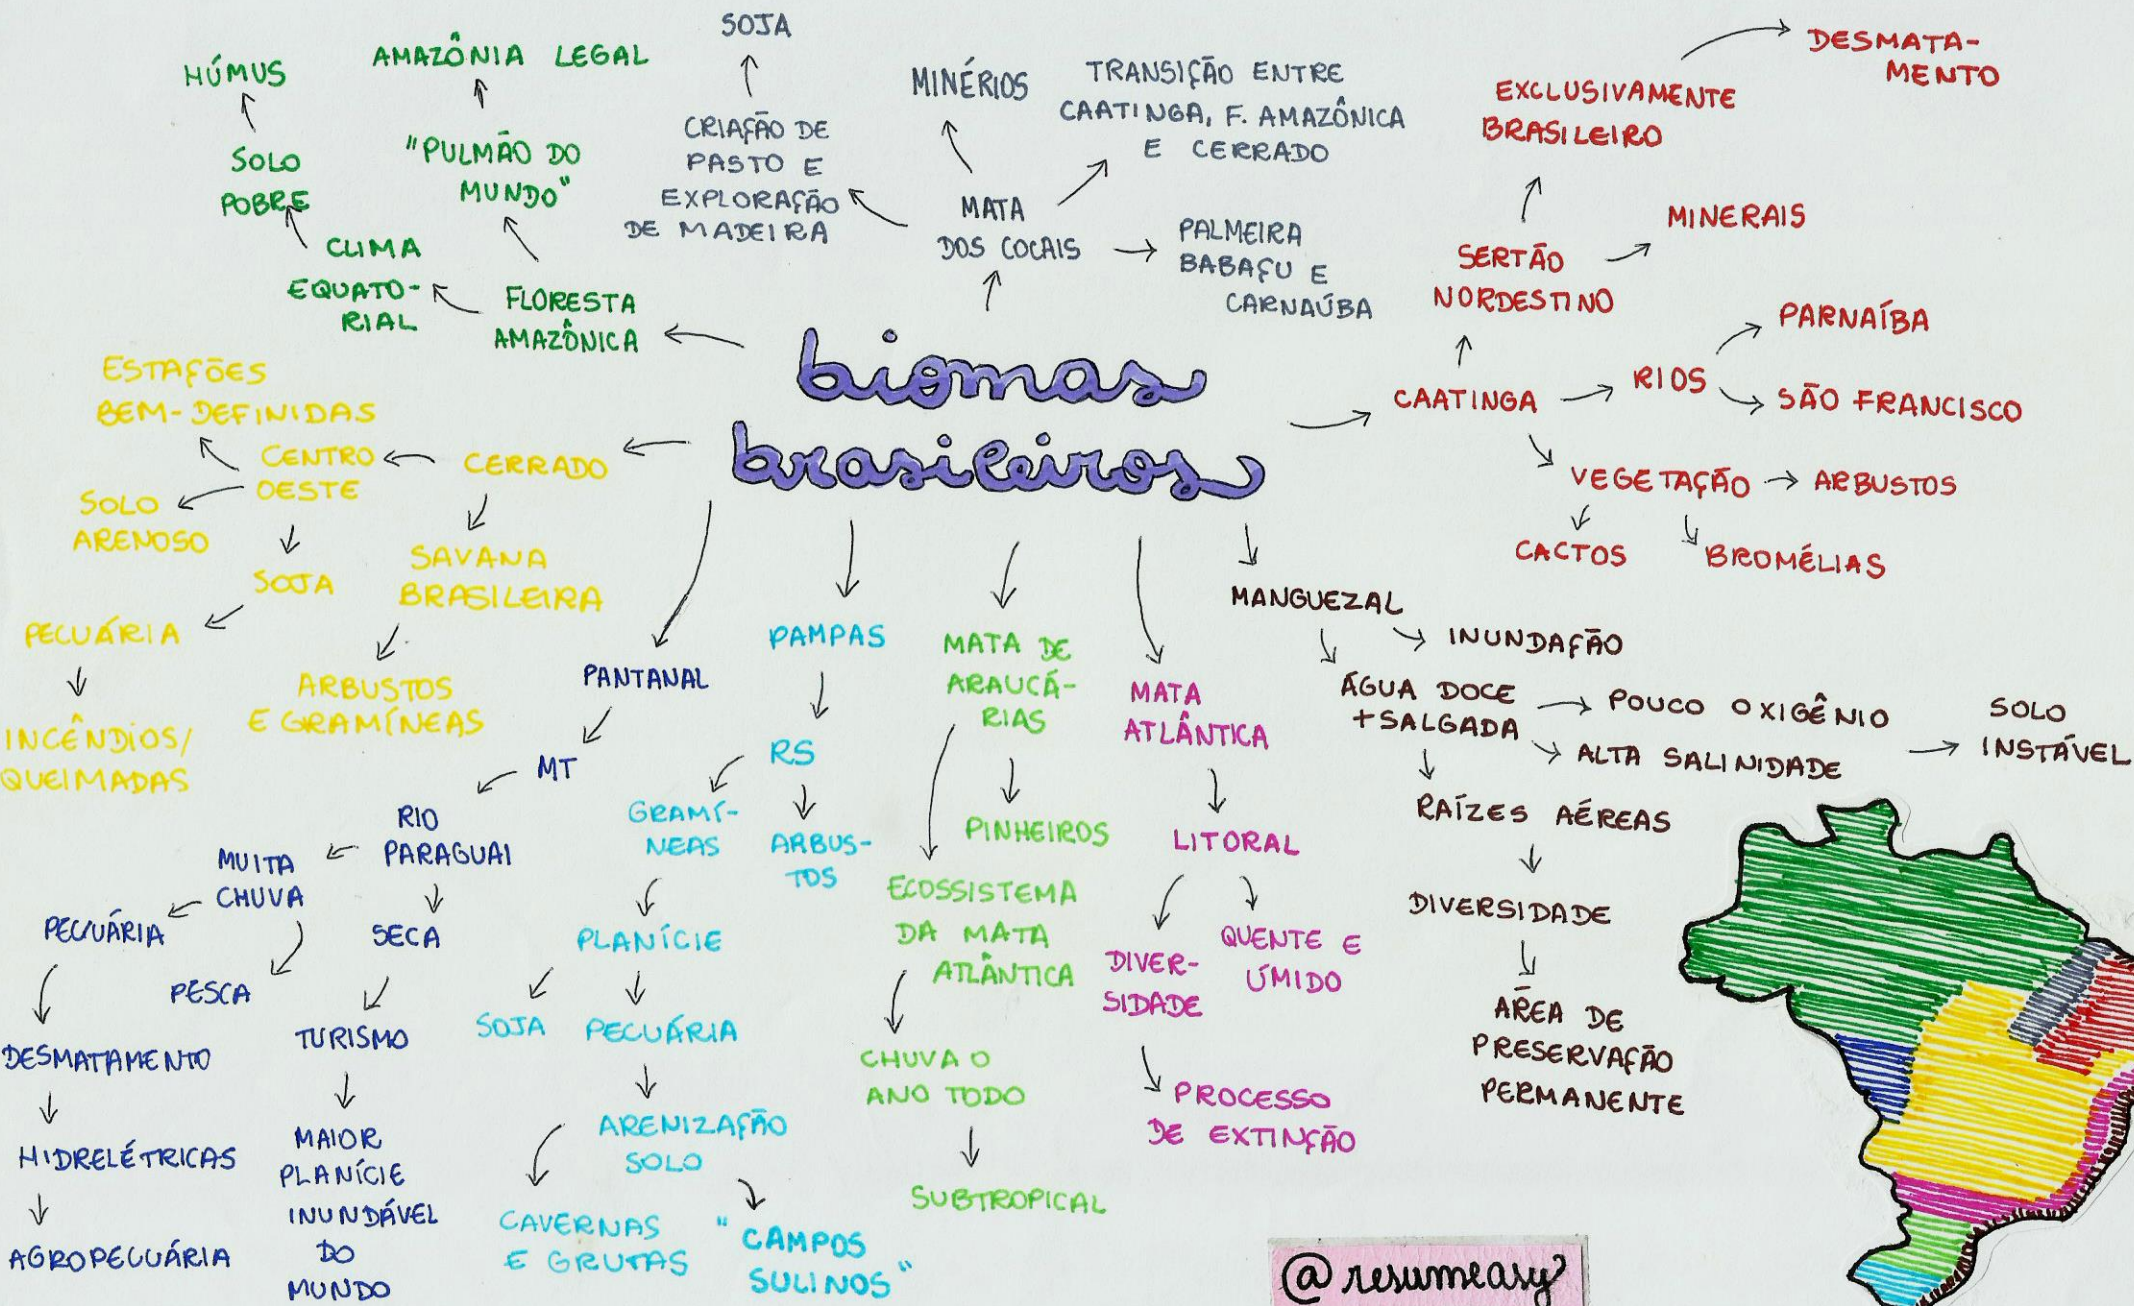 biomas
brasileiros
FLORESTA
AMAZÔNICA
"PULMÃO DO
MUNDO"
AMAZÔNIA LEGAL
CLIMA
EQUATO-
RIAL
SOLO
POBRE
HÚMUS
MATA
DOS COCAIS
CRIAÇÃO DE
PASTO E
EXPLORAÇÃO
DE MADEIRA
SOJA
MINÉRIOS
TRANSIÇÃO ENTRE
CAATINGA, F. AMAZÔNICA
E CERRADO
PALMEIRA
BABAÇU E
CARNAÚBA
CAATINGA
SERTÃO
NORDESTINO
EXCLUSIVAMENTE
BRASILEIRO
DESMATA-
MENTO
MINERAIS
RIOS
PARNAÍBA
SÃO FRANCISCO
VEGETAÇÃO
ARBUSTOS
CACTOS
BROMÉLIAS
CERRADO
CENTRO
OESTE
ESTAÇÕES
BEM-DEFINIDAS
SOLO
ARENOSO
SOJA
PECUÁRIA
INCÊNDIOS/
QUEIMADAS
SAVANA
BRASILEIRA
ARBUSTOS
E GRAMÍNEAS
PANTANAL
MT
RIO
PARAGUAI
MUITA
CHUVA
PECUÁRIA
PESCA
DESMATAMENTO
HIDRELÉTRICAS
AGROPECUÁRIA
SECA
TURISMO
MAIOR
PLANÍCIE
INUNDÁVEL
DO
MUNDO
PAMPAS
RS
GRAMÍ-
NEAS
ARBUS-
TOS
PLANÍCIE
SOJA
PECUÁRIA
ARENIZAÇÃO
SOLO
CAVERNAS
E GRUTAS
"CAMPOS
SULINOS"
MATA DE
ARAUCÁ-
RIAS
PINHEIROS
ECOSSISTEMA
DA MATA
ATLÂNTICA
CHUVA O
ANO TODO
SUBTROPICAL
MATA
ATLÂNTICA
LITORAL
DIVER-
SIDADE
QUENTE E
ÚMIDO
PROCESSO
DE EXTINÇÃO
MANGUEZAL
INUNDAÇÃO
ÁGUA DOCE
+SALGADA
POUCO OXIGÊNIO
ALTA SALINIDADE
SOLO
INSTÁVEL
RAÍZES AÉREAS
DIVERSIDADE
ÁREA DE
PRESERVAÇÃO
PERMANENTE
@resumeasy